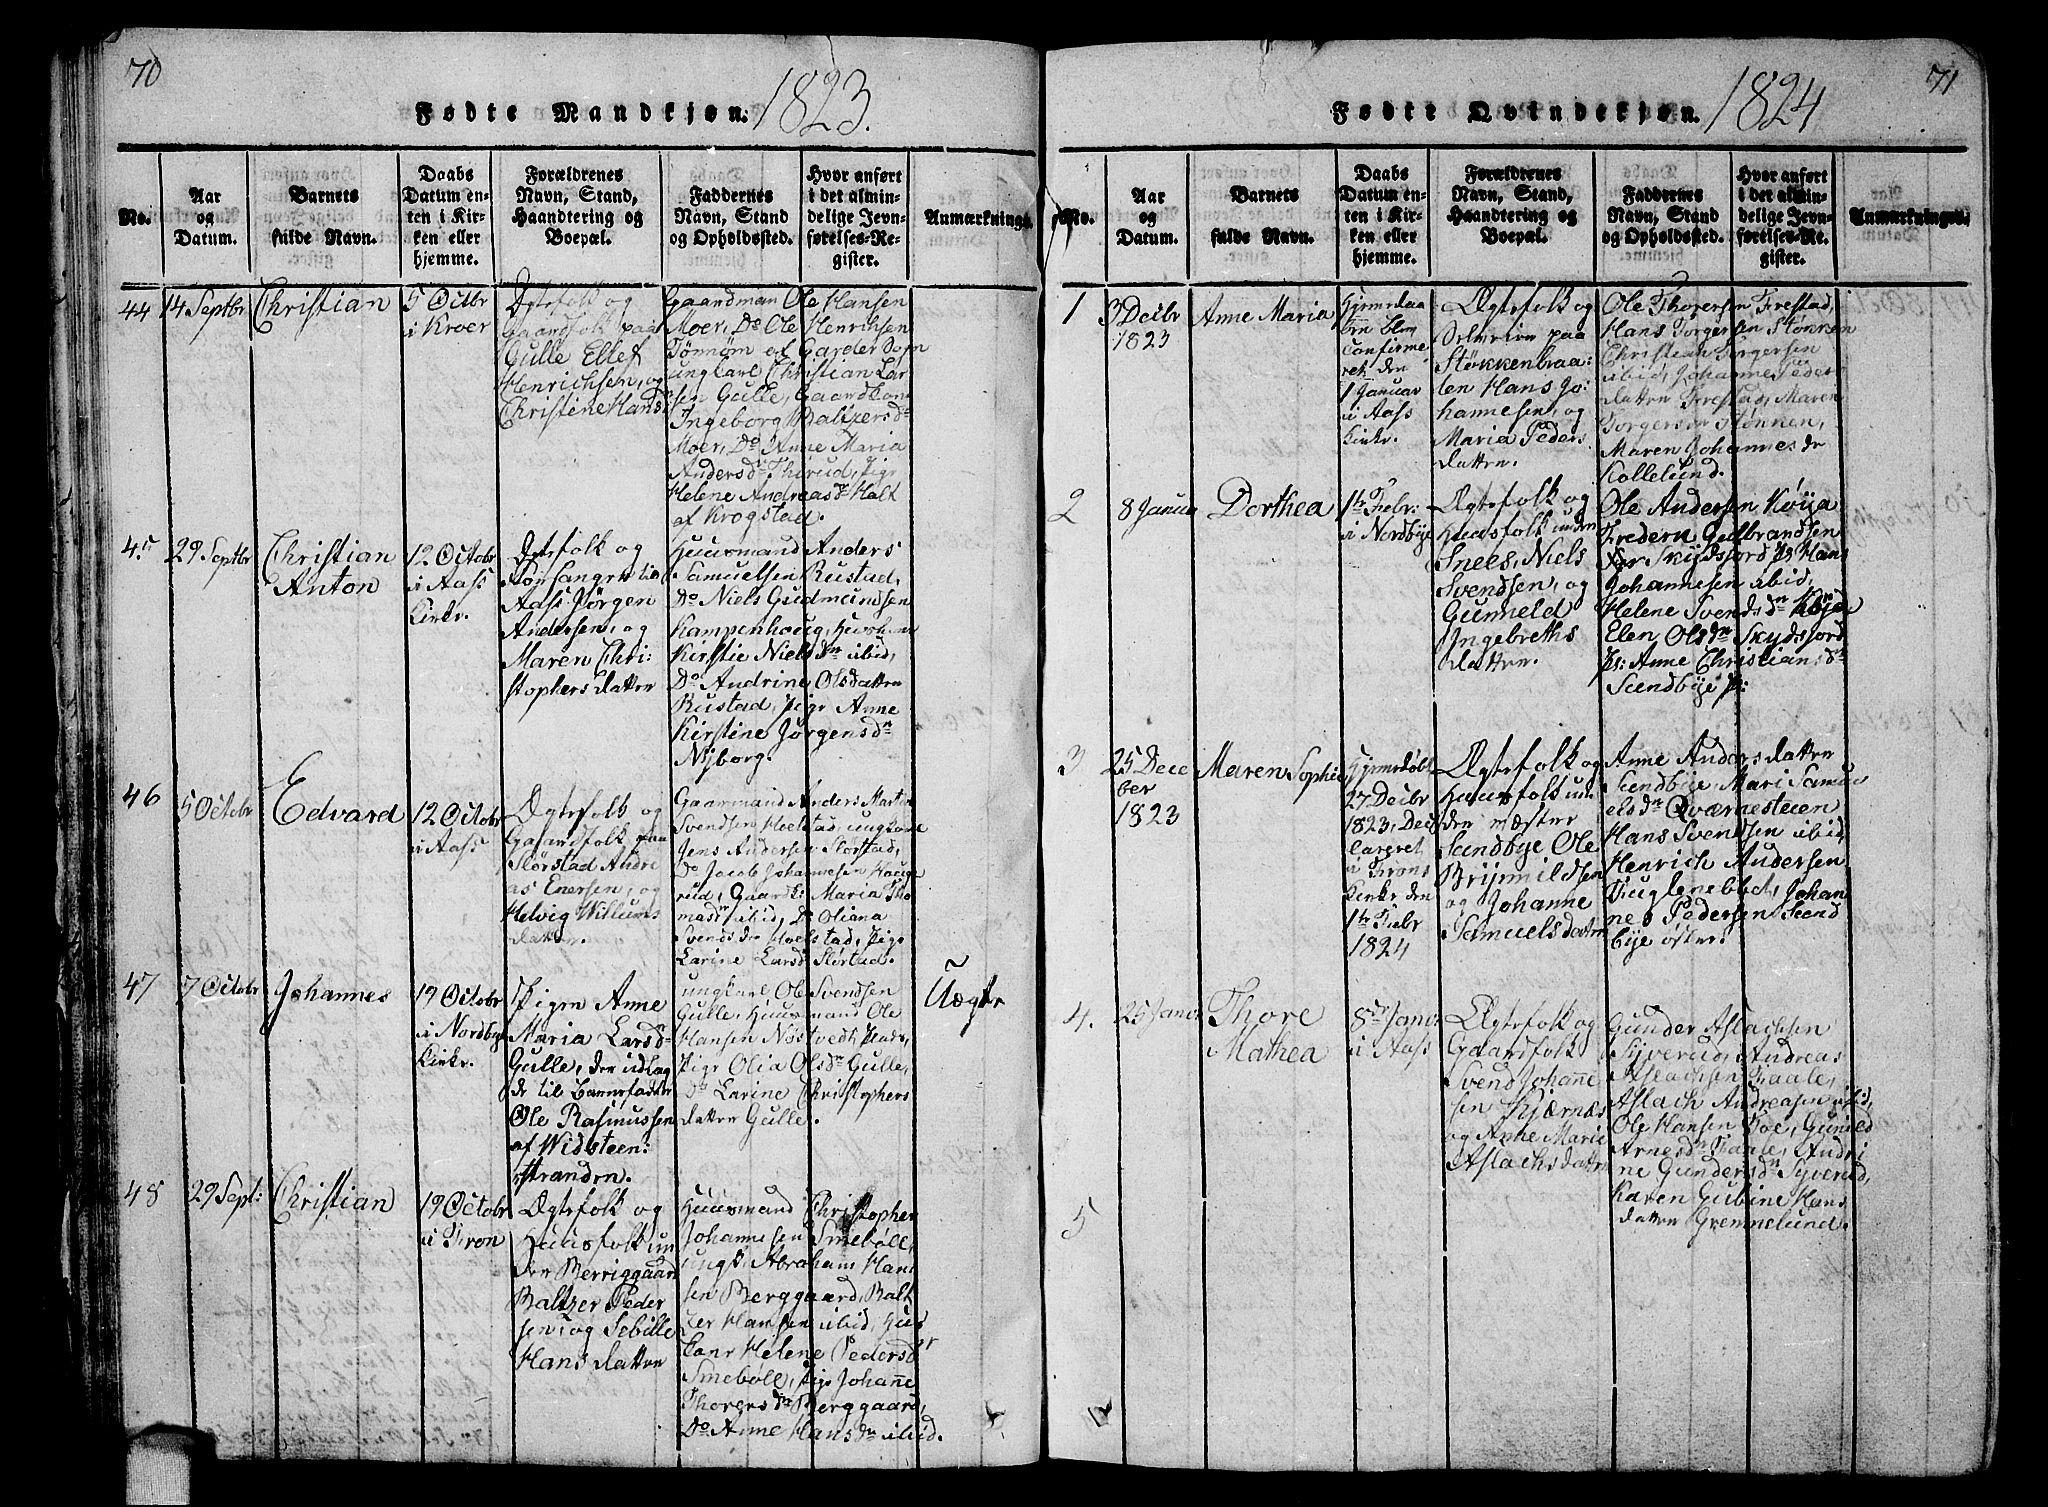 70
Fødte Mandkjøn. 1823.
No.
Aar
og
Datum.
Barnets
fulde Navn.
Daabs
Datum en-
ten i Kir-
ken eller
hjemme.
Forældrenes
Navn, Stand,
Haandtering og
Boepæl.
Faddernes
Navn, Stand
og Opholdssted.
Hvor anført
i det almin-
delige Jevn-
førelses-Re-
gister.
Anmærkninger.
44
14 Septbr
Christian
5 Octbr
i Kroer
Ægtefolk og
Gaardfolk paa
Gulle Ellef
Henrichsen, og
Christine Hans
Gaardman Ole Hansen
Moer, Do Ole Henrichsen
Tønnøm af Garder Sogn
ungkarl Christian Lar
sen Gulle, Gaardkon
Ingeborg Baltzersdr
Moer, Do Anne Maria
Andersdr Thirud, Pige
Helene Andreasdr Holt
af Krogstad.
45
29 Septbr
Christian
Anton
12 Octobr
i Aass
Kirke.
Ægtefolk og
Aass Jørgen
Andersen, og
Maren Chri-
stophersdatter
Huusmand Anders
Samuelsen Rustad,
Do Niels Gudmundsen
Kampenhoug,
Kirstie Nielsdr ibid,
Do Andrine Olsdatter
Rustad, Pige Anne
Kirstine Jørgensdr
Nijborg.
46
5 Octobr
Edvard
12 Octobr
i Aass
Ægtefolk og
Gaardfolk paa
Slørstad Andre
as Enersen, og
Helvig Willums
datter.
Gaarmand Anders Martin
Svendsen Hoelstad, ungkarl
Jens Andersen Slørstad,
Do Jacob Johannesen Houge
rud, Gaardk: Maria Tho
masdr ibid, Do Oliana
Svendsdr Hoelstad, Pige
Larine Larsd Slørstad.
47
7 Octobr
Johannes
19 Octobr
i Nordbye
Kirke.
Pigen Anne
Maria Larsd-
Gulle, der udlag
de til Barnefader
Ole Rasmussen
af Widsteen-
stranden.
ungkarl Ole Svendsen
Gulle, Huusmand Ole
Hansen Nøstvedt Plads,
Pige Olia Olsdr Gulle,
Do Larine Christophers
datter Gulle.
Uægte
48
29 Sept:
Christian
19 Octobr
i Fron
Ægtefolk og
Huusfolk un
der Berriggaard
Baltzer Peder
sen, og Sebille
Hansdatter
Huusmand Christopher
Johannesen Smebøll,
ungk. Abraham Han
sen Berggaard, Balt
zer Hansen ibid, Huus
konr Helene Pedersdr
Smebøll, Pige Johanne
Thoresdr Berggaard,
Do Anne Hansdr ibid.
71
Fødte Qvindekjøn. 1824
No.
Aar
og
Datum.
Barnets
fulde Navn.
Daabs
Datum en-
ten i Kir-
ken eller
hjemme.
Forældrenes
Navn, Stand,
Haandtering og
Boepæl.
Faddernes
Navn, Stand
og Opholdssted.
Hvor anført
i det almin-
delige Jevn-
førelses-Re-
gister.
Anmærkninger.
1
3 Decbr
1823
Anne Maria
Hjemedaa
ben blev
Confirme
ret den
1 Januar
i Aass
Kirke.
Ægtefolk og
Selveier paa
Støkkenbraa-
ten Hans Jo-
hannesen, og
Maria Peders
datter.
Ole Thoresen Frestad,
Hans Torgersen Stønken
Christian Torgersen
ibid, Johanne Peders
datter Frestad, Maren
Torgersdr Stønken,
Maren Johannesdr
Kollelund.
2
8 Januar
Dorthea
1te Febr:
i Nordbye
Ægtefolk og
Huusfolk under
Snees, Niels
Svendsen, og
Gunneld
Ingebreths
datter.
Ole Andersen Køya
Frederu Gulbrandsen
Skydsjord Pl: Hans
Johannesen ibid,
Helene Svendsdr Køya
Elen Olsdr Skydsjord
Pl: Anne Christian: dr
Sundbye Pl:
3
25 Dece
ber
1823
Maren Sophie
Hjemedøbt
27 Decbr
1823, Dec
lareret
i Frons
Kirke den
1te Febr
1824
Ægtefolk og
Huusfolk un
der mæster
Sundbye Ole
Brijmildsen
og Johanne
Samuelsdatter
Anne Andersdatter
Sundbye Mari Samu
elsdr Qværnesteen
Hans Svendsen ibid,
Henrich Andersen
Fuglenebbet, Johan
nes Pedersen Sund
bye øster.
4.
25 Janr
Thore
Mathea
8de Janr
i Aass
Ægtefolk og
Gaardfolk
Svend Johanne
sen Kjærnæs
og Anne Marie
Aslachsdatter
Gunder Aslachsen
Syverud, Andreas
Aslachsen Faale,
Aslach Andreasen ibid,
Ole Hansen Foe, Gunild
Arnesdr Faale, Andri
ne Gundersdr Syverud,
Karen Gubine Hans
datter Gremmelund.
5